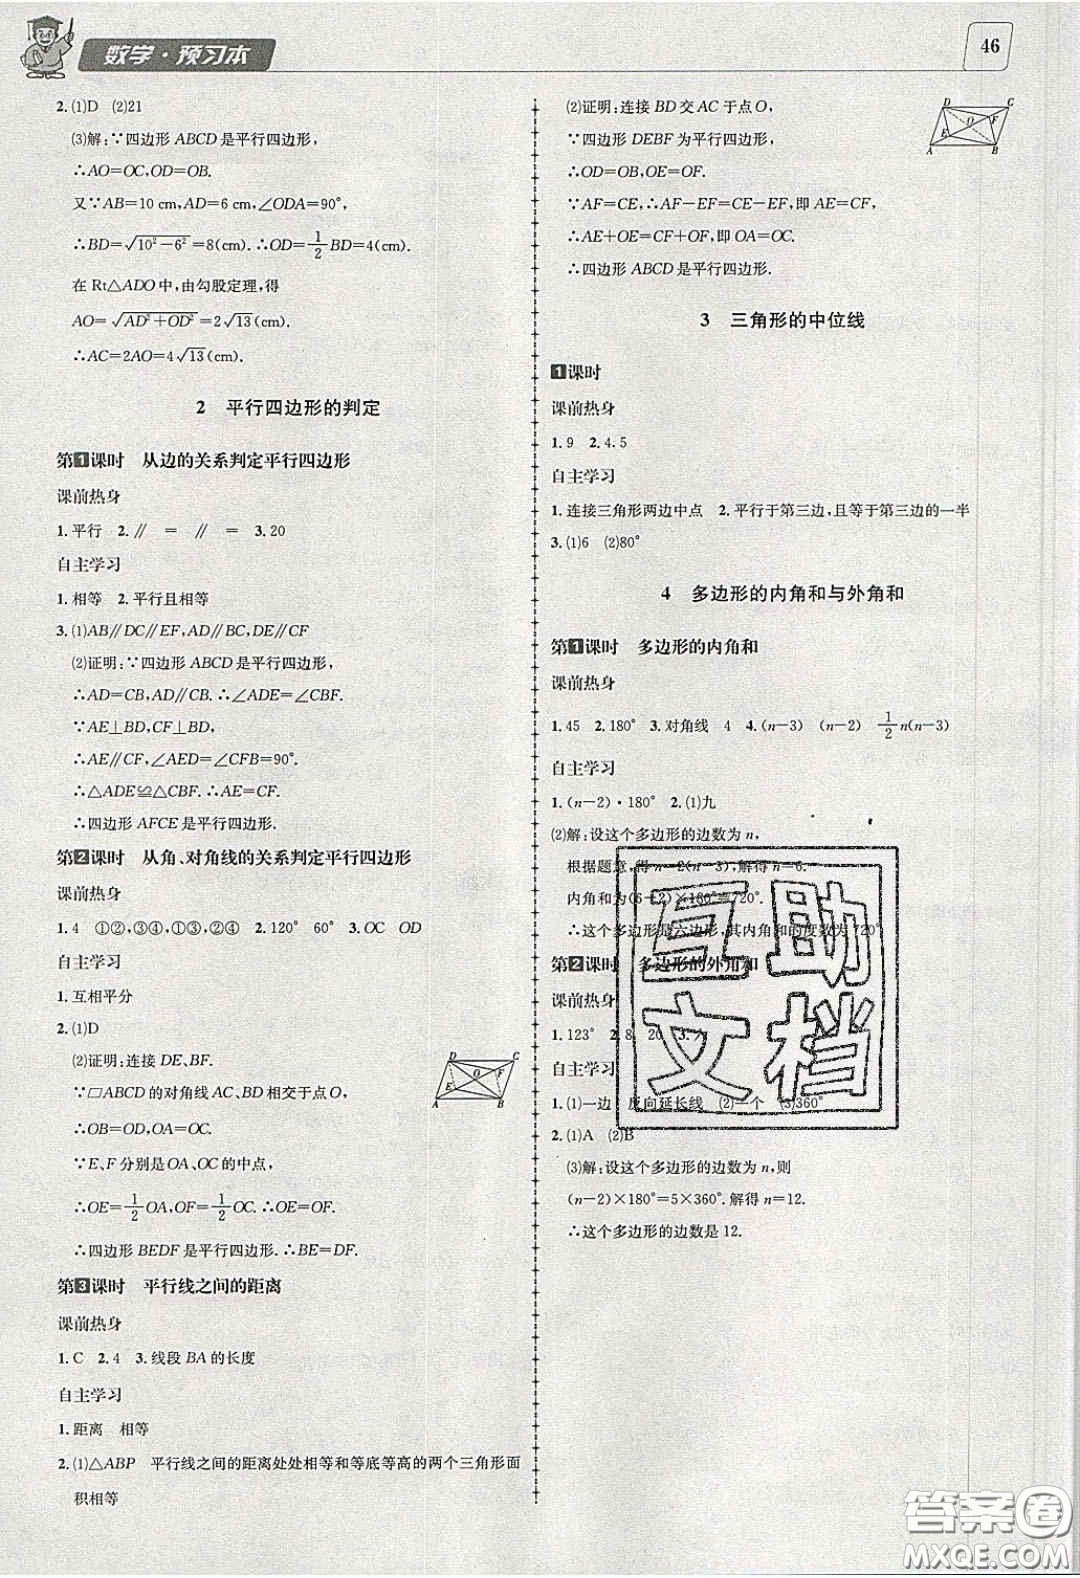 数学·预习本
46
2.(1)D (2)21
(3)解:∵四边形 ABCD 是平行四边形,
∴AO=OC,OD=OB.
又∵AB=10 cm,AD=6 cm,∠ODA=90°,
∴BD=√(10²-6²)=8(cm).∴OD=1/2 BD=4(cm).
在 Rt△ADO 中,由勾股定理,得
AO=√(AD²+OD²)=2√13(cm).
∴AC=2AO=4√13(cm).
2 平行四边形的判定
第1课时 从边的关系判定平行四边形
课前热身
1.平行 2.∥ = ∥ = 3.20
自主学习
1.相等 2.平行且相等
3.(1)AB∥DC∥EF,AD∥BC,DE∥CF
(2)证明:∵四边形 ABCD 是平行四边形,
∴AD=CB,AD∥CB.∴∠ADE=∠CBF.
∵AE⊥BD,CF⊥BD,
∴AE∥CF,∠AED=∠CFB=90°.
∴△ADE≌△CBF.∴AE=CF.
∴四边形 AFCE 是平行四边形.
第2课时 从角、对角线的关系判定平行四边形
课前热身
1.4 ①②,③④,①③,②④ 2.120° 60° 3.OC OD
自主学习
1.互相平分
2.(1)D
(2)证明:连接 DE,BF.
∵□ABCD 的对角线 AC,BD 相交于点 O,
∴OB=OD,OA=OC.
∵E、F 分别是 OA、OC 的中点,
∴OE=1/2 OA,OF=1/2 OC.∴OE=OF.
∴四边形 BEDF 是平行四边形.∴BE=DF.
D C
E O F
A B
第3课时 平行线之间的距离
课前热身
1.C 2.4 3.线段 BA 的长度
自主学习
1.距离 相等
2.(1)△ABP 平行线之间的距离处处相等和等底等高的两个三角形面
积相等
(2)证明:连接 BD 交 AC 于点 O,
∵四边形 DEBF 为平行四边形,
∴OD=OB,OE=OF.
∵AF=CE,∴AF-EF=CE-EF,即 AE=CF,
∴AE+OE=CF+OF,即 OA=OC.
∴四边形 ABCD 是平行四边形.
D C
O F
E
A B
3 三角形的中位线
1课时
课前热身
1.9 2.4.5
自主学习
1.连接三角形两边中点 2.平行于第三边,且等于第三边的一半
3.(1)6 (2)80°
4 多边形的内角和与外角和
第1课时 多边形的内角和
课前热身
1.45 2.180° 3.对角线 4 4.(n-3) (n-2) 1/2 n(n-3)
自主学习
1.(n-2)·180° 2.(1)九
(2)解:设这个多边形的边数为 n,
根据题意,得 n=2(n-3),解得 n=6.
内角和为(6-2)×180°=720°.
∴这个多边形是六边形,其内角和的度数为 720°.
第2课时 多边形的外角和
课前热身
1.123° 2.8 20 3.
自主学习
1.(1)一边 反向延长线 (2)一个 (3)360°
2.(1)A (2)B
(3)解:设这个多边形的边数为 n,则
(n-2)×180°=5×360°.解得 n=12.
∴这个多边形的边数是 12.
互助
文档
答案圈
MXQE.COM